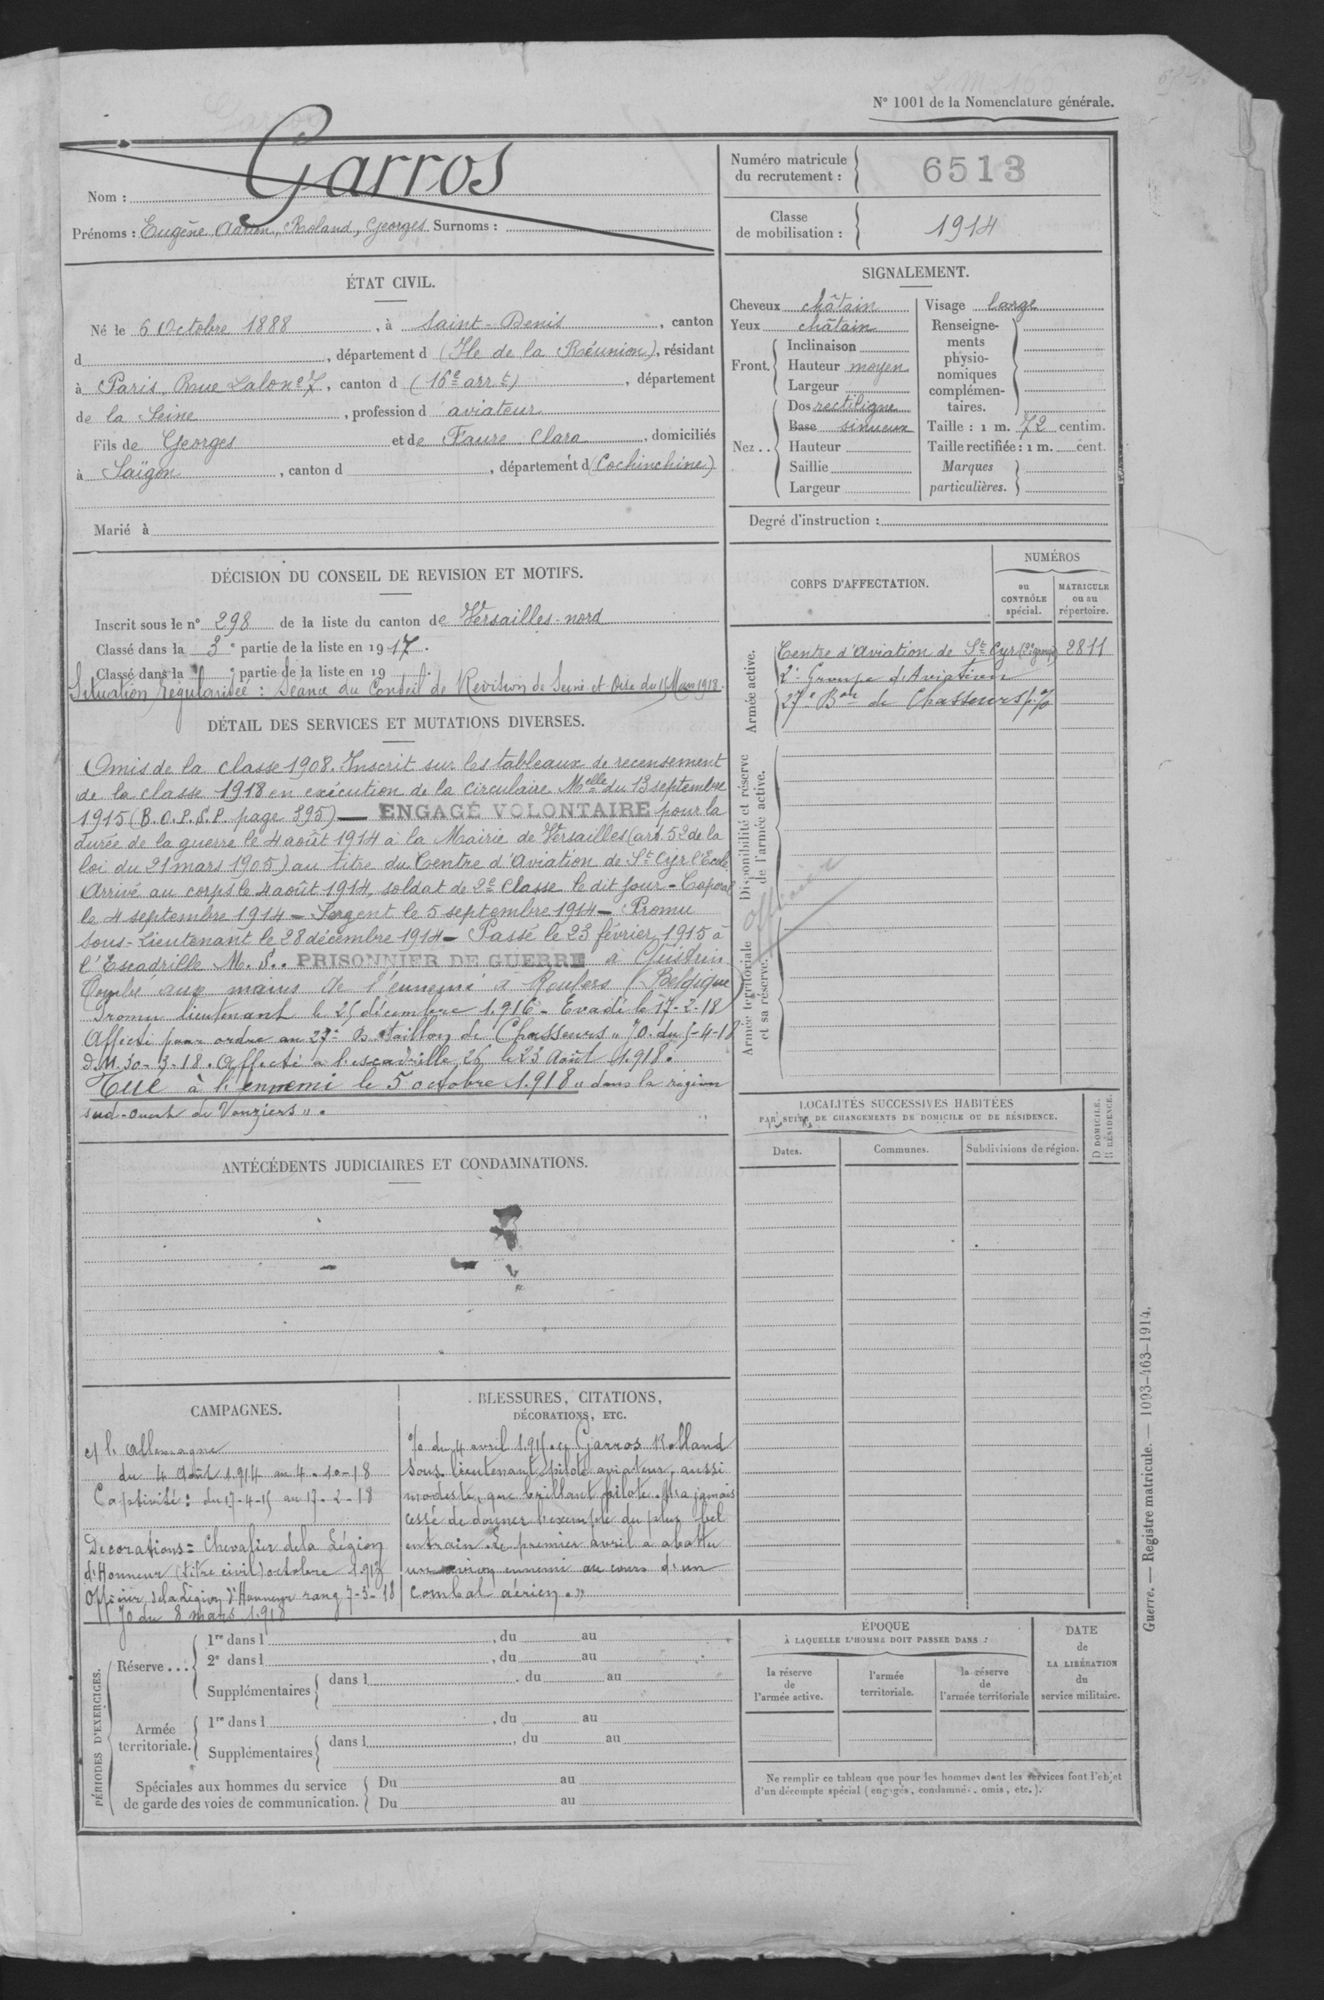 N° 1001 de la Nomenclature générale.
Nom : Garros
Prénoms : Eugène, Adrien, Roland, Georges Surnoms :
Numéro matricule du recrutement : 6513
Classe de mobilisation : 1914
ÉTAT CIVIL.
Né le 6 Octobre 1888, à Saint-Denis, canton
d , département d (Ile de la Réunion), résidant
à Paris, Rue Lalo n° 7, canton d (16e arrt), département
de la Seine, profession d aviateur
Fils de Georges et de Faure Clara, domiciliés
à Saïgon, canton d , département d (Cochinchine)
Marié à
SIGNALEMENT.
Cheveux châtain
Yeux châtain
Front. Inclinaison
Hauteur moyen
Largeur
Nez .. Dos rectiligne
Base sinueux
Hauteur
Saillie
Largeur
Visage large
Renseigne-
ments
physio-
nomiques
complémen-
taires.
Taille : 1 m. 72 centim.
Taille rectifiée : 1 m. cent.
Marques
particulières.
Degré d'instruction :
DÉCISION DU CONSEIL DE REVISION ET MOTIFS.
Inscrit sous le n° 298 de la liste du canton de Versailles-nord
Classé dans la 3e partie de la liste en 1917.
Classé dans la e partie de la liste en 19 .
Situation régularisée : Séance du Conseil de Revision de Seine et Oise du 11 Mars 1918.
DÉTAIL DES SERVICES ET MUTATIONS DIVERSES.
Omis de la classe 1908. Inscrit sur les tableaux de recensement
de la classe 1918 en exécution de la circulaire Melle du 13 septembre
1915 (B.O.P.S.P. page 395) — ENGAGÉ VOLONTAIRE pour la
durée de la guerre le 4 août 1914 à la Mairie de Versailles (art. 52 de la
loi du 21 mars 1905) au titre du Centre d'Aviation de St Cyr l'Ecole
Arrivé au corps le 4 août 1914, soldat de 2e Classe le dit jour - Caporal
le 4 septembre 1914 — Sergent le 5 septembre 1914 — Promu
sous-Lieutenant le 28 décembre 1914 — Passé le 23 février 1915 à
l'Escadrille M.S.. PRISONNIER DE GUERRE à Custrin
Tombé aux mains de l'ennemi à Roulers (Belgique)
Promu lieutenant le 25 décembre 1916 - Evadé le 17-2-18
Affecté pour ordre au 27e Bataillon de Chasseurs JO. du 5-4-18
D.M. 30-3-18. Affecté à l'escadrille 26 le 23 Août 1918.
Tué à l'ennemi le 5 octobre 1918 " dans la région
sud-ouest de Vouziers ".
CORPS D'AFFECTATION.
NUMÉROS
au
CONTRÔLE
spécial.
MATRICULE
ou au
répertoire.
Armée active.
Centre d'Aviation de St Cyr (2e groupe) 2811
2e Groupe d'Aviation
27e Bon de Chasseurs p. %
Disponibilité et réserve
de l'armée active.
officier
Armée territoriale
et sa réserve.
LOCALITÉS SUCCESSIVES HABITÉES
PAR SUITE DE CHANGEMENTS DE DOMICILE OU DE RÉSIDENCE.
Dates.
Communes.
Subdivisions de région.
D DOMICILE.
R RÉSIDENCE.
ANTÉCÉDENTS JUDICIAIRES ET CONDAMNATIONS.
CAMPAGNES.
c/ l'Allemagne
du 4 Août 1914 au 4-10-18
Captivité : du 17-4-15 au 17-2-18
Décorations = Chevalier de la Légion
d'Honneur (titre civil) octobre 1913
Officier de la Légion d'Honneur rang 7-3-18
JO du 8 mars 1918
BLESSURES, CITATIONS,
DÉCORATIONS, ETC.
% du 4 avril 1915 Garros Rolland
sous lieutenant pilote aviateur, aussi
modeste que brillant pilote. N'a jamais
cessé de donner l'exemple du plus bel
entrain. Le premier avril a abattu
un avion ennemi au cours d'un
combat aérien. "
PÉRIODES D'EXERCICES.
Réserve ... 1re dans l , du au
2e dans l , du au
Supplémentaires dans l , du au
Armée territoriale. 1re dans l , du au
Supplémentaires dans l , du au
Spéciales aux hommes du service
de garde des voies de communication.
Du au
Du au
ÉPOQUE
À LAQUELLE L'HOMME DOIT PASSER DANS :
la réserve
de
l'armée active.
l'armée
territoriale.
la réserve
de
l'armée territoriale
DATE
de
LA LIBÉRATION
du
service militaire.
Ne remplir ce tableau que pour les hommes dont les services font l'objet
d'un décompte spécial (engagés, condamnés, omis, etc.).
Guerre. — Registre matricule. — 1093-463-1914.